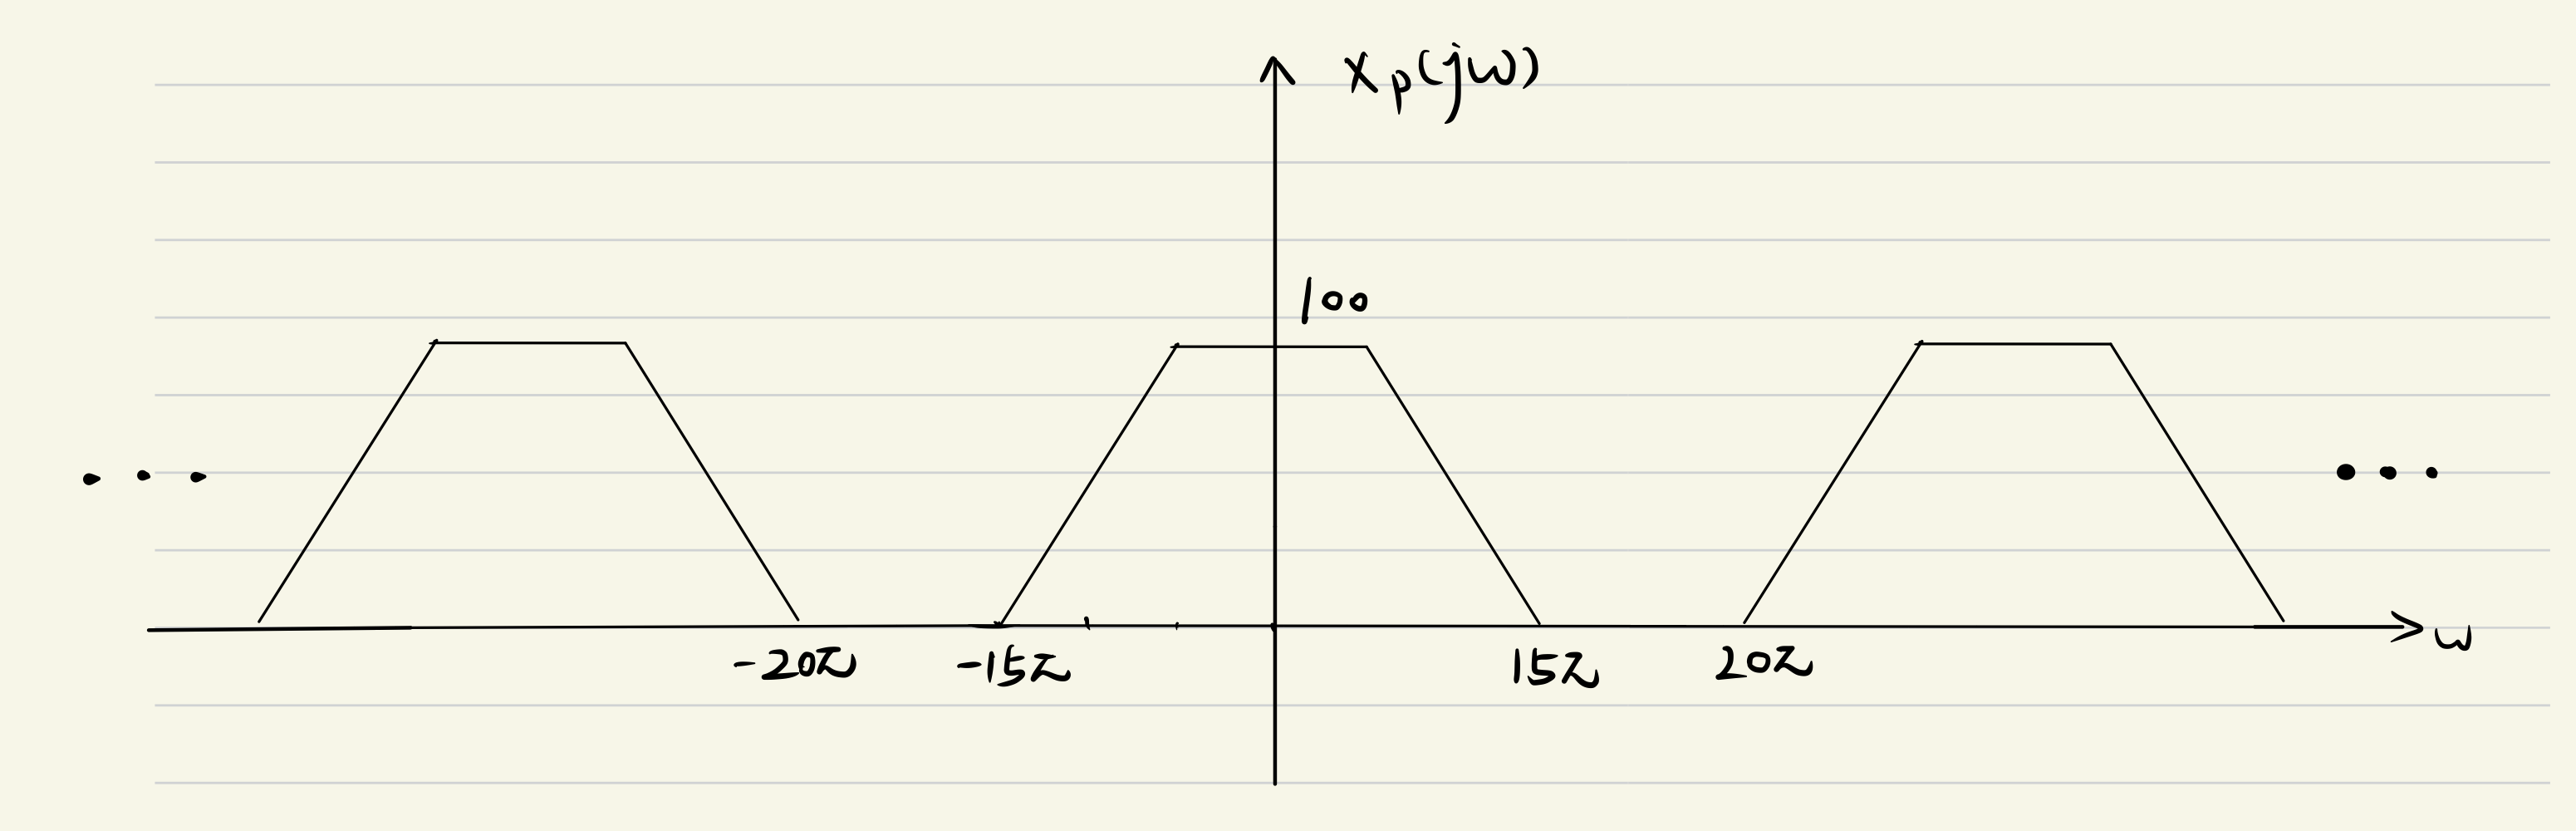 Xp(jω)
100
-20π -15π 15π 20π
ω